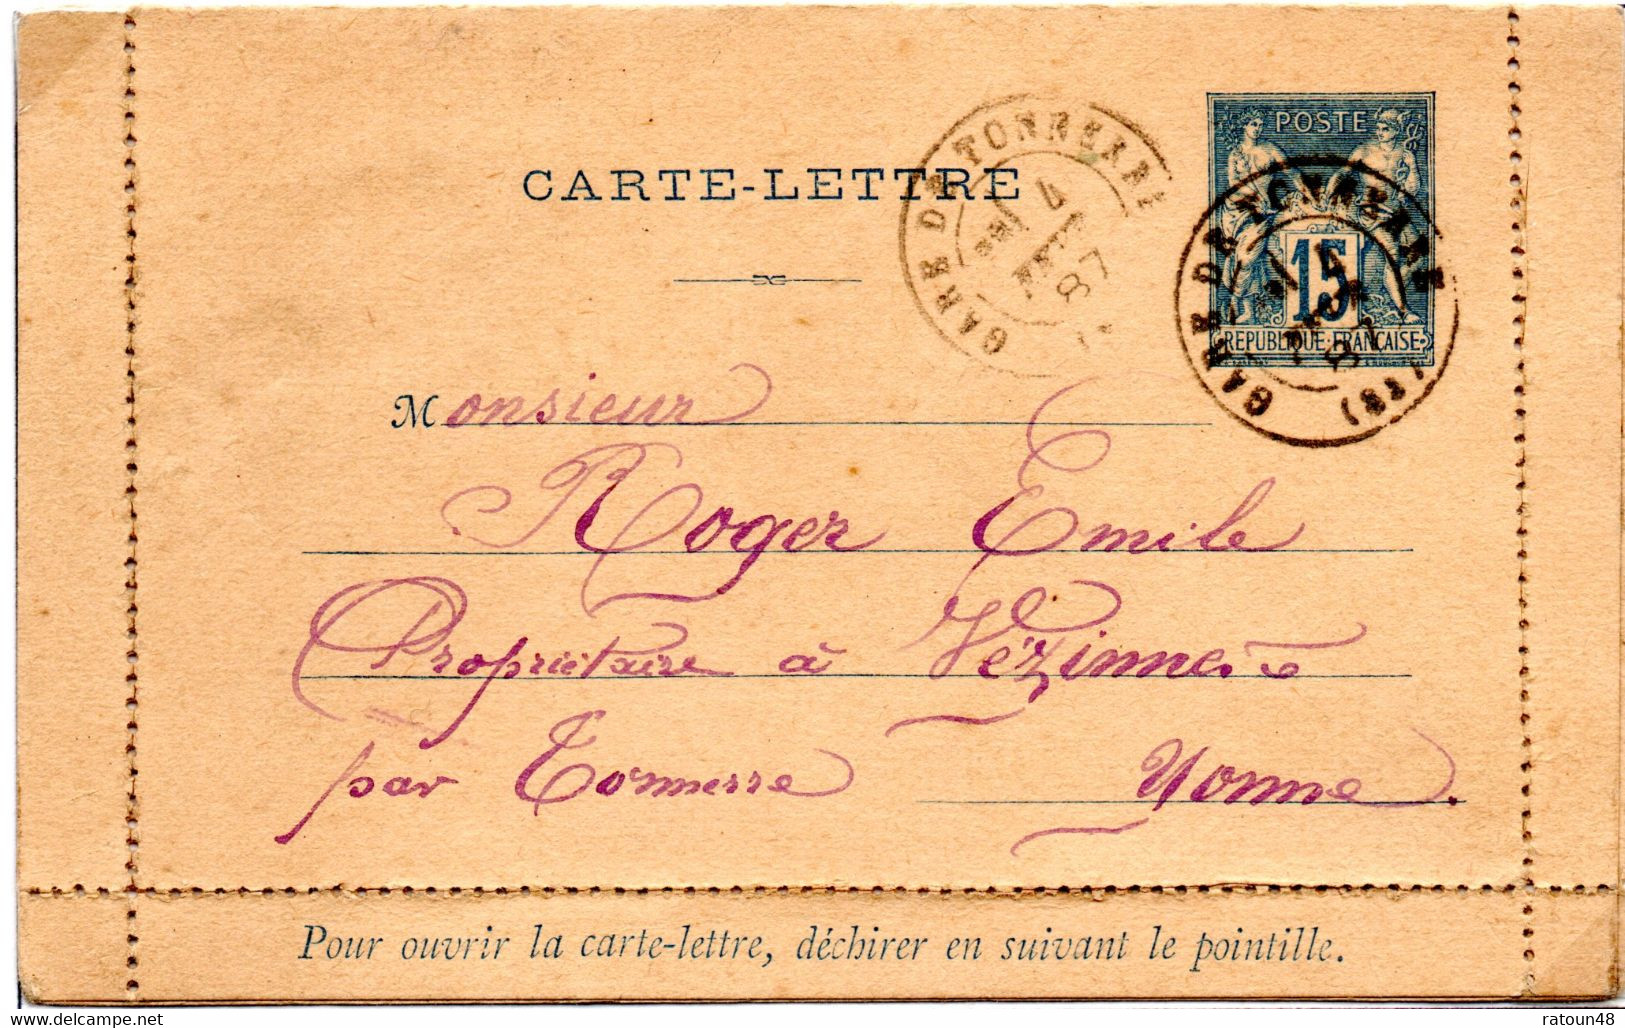 POSTE
15
REPUBLIQUE FRANCAISE
GARE DE TONNERRE
4
87
GARE DE TONNERRE
4
87
CARTE-LETTRE
Monsieur
Roger Emile
Propriétaire à Vézinnes
par Tonnerre Yonne.
Pour ouvrir la carte-lettre, déchirer en suivant le pointillé.
www.delcampe.net
ratoun48